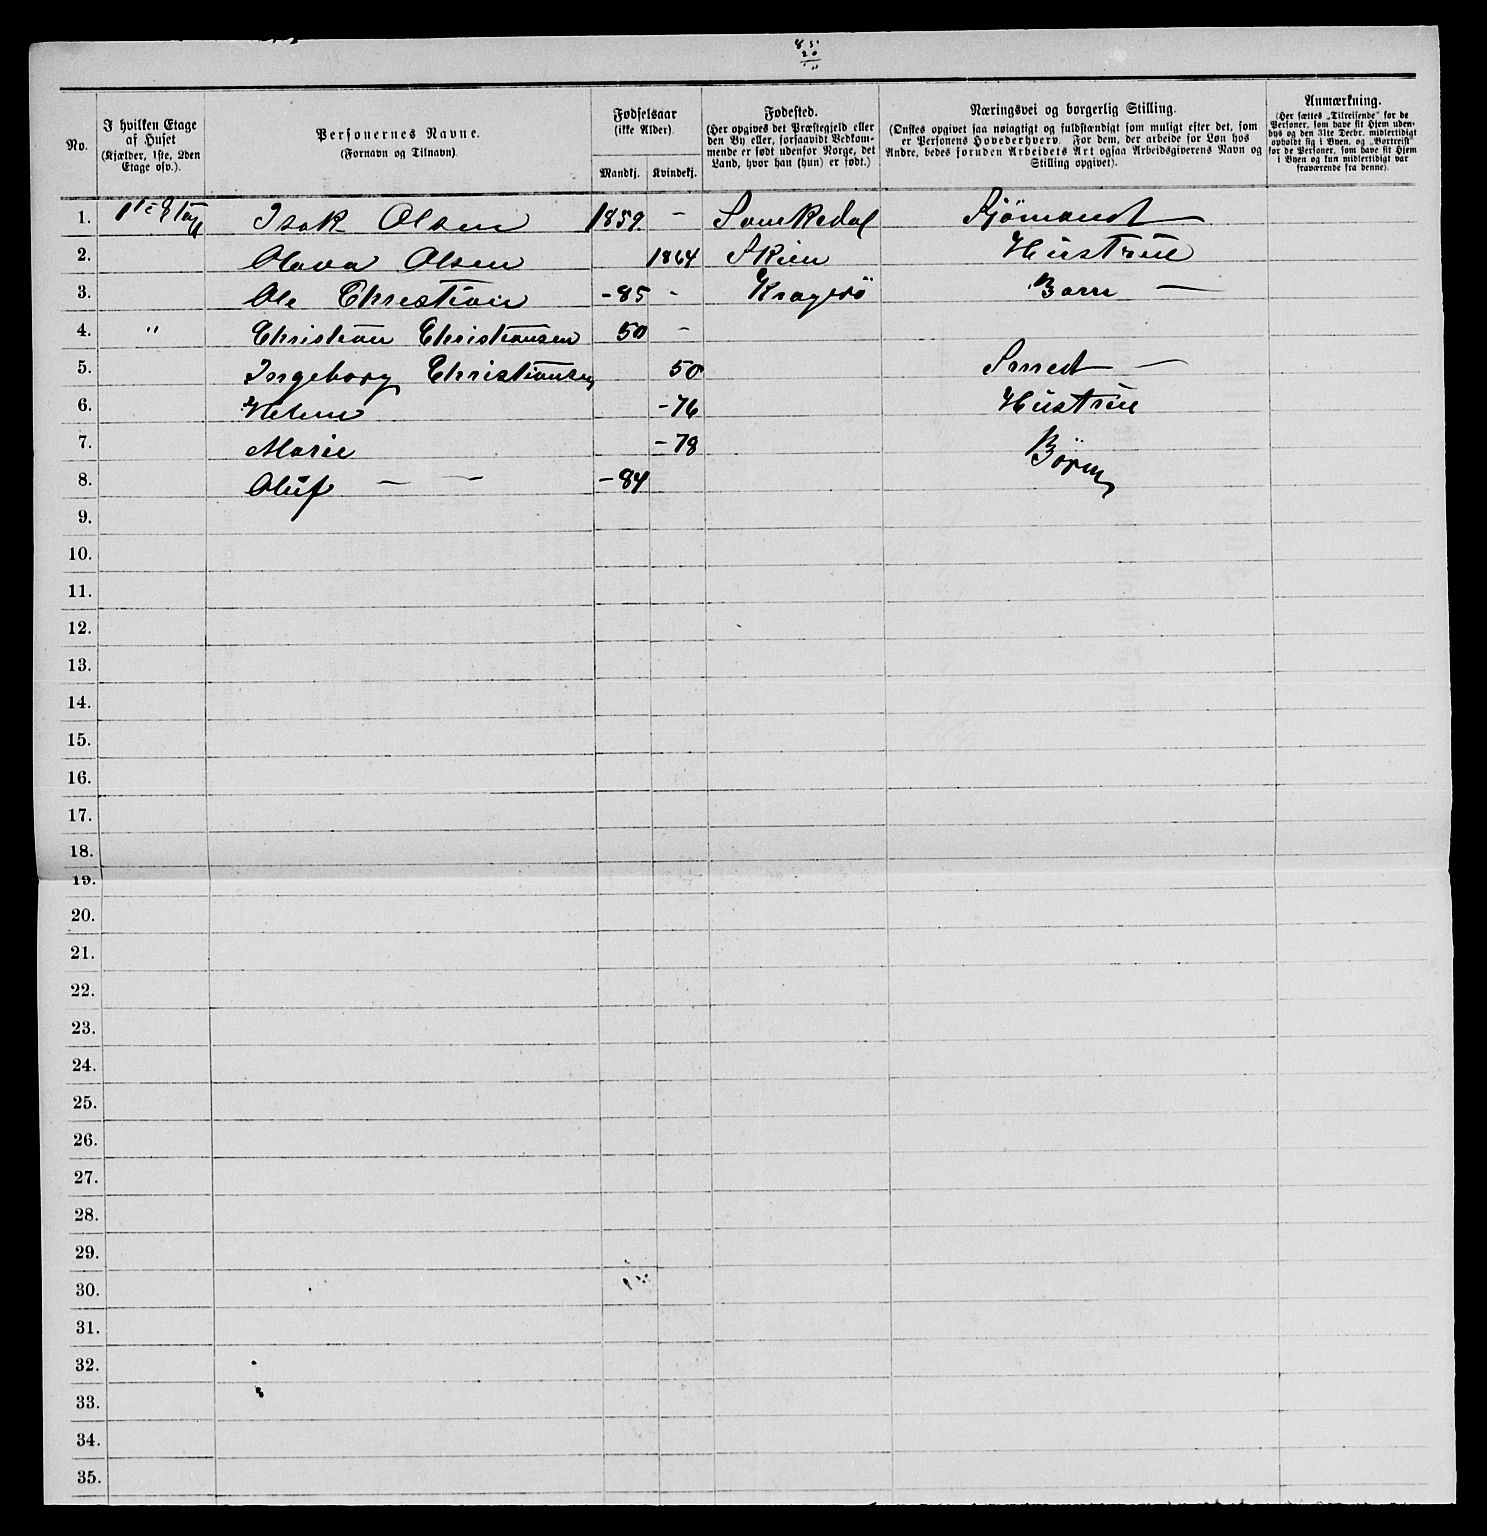 85
20
No.
I hvilken Etage af Huset (Kjælder, 1ste, 2den Etage osv.).
Personernes Navne. (Fornavn og Tilnavn)
Fødselsaar (ikke Alder).
Mandkj. Kvindekj.
Fødested. (Her opgives det Præstegjeld eller den By eller, forsaavidt Vedkommende er født udenfor Norge, det Land, hvor han (hun) er født.)
Næringsvei og borgerlig Stilling. (Ønskes opgivet saa nøiagtigt og fuldstændigt som muligt efter det, som er Personens Hovederhverv. For dem, der arbeide for Løn hos Andre, bedes foruden Arbeidets Art ogsaa Arbeidsgiverens Navn og Stilling opgivet).
Anmærkning. (Her sættes „Tilreisende“ for de Personer, som have sit Hjem udenbys og den 31te Decbr. midlertidigt opholdt sig i Byen, og „Bortreist“ for de Personer, som have sit Hjem i Byen og kun midlertidigt var fraværende fra denne).
1. 1te Etag Isak Olsen 1859. - Sannkedal Sjömand —
2. Olava Olsen 1864 Skien Hustrue
3. Ole Christian - 85 - Kragerö Barn —
4. " Christian Christiansen 50 -
5. Ingeborg Christiansen 50 —
6. Helene - 76 Hustrue
7. Marie - 78 Börn
8. Oluf — — - 84
9.
10.
11.
12.
13.
14.
15.
16.
17.
18.
19.
20.
21.
22.
23.
24.
25.
26.
27.
28.
29.
30.
31.
32.
33.
34.
35.